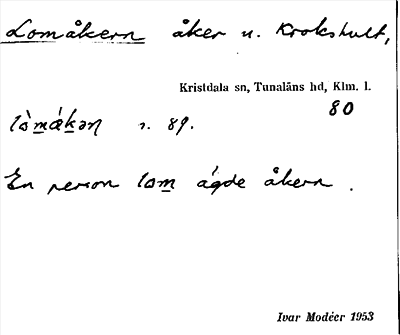 Lomåkern åker u. Krokshult,
Kristdala sn, Tunaläns hd, Klm. l.
80
r. 89.
En person lom ägde åkern.
Ivar Modéer 1953